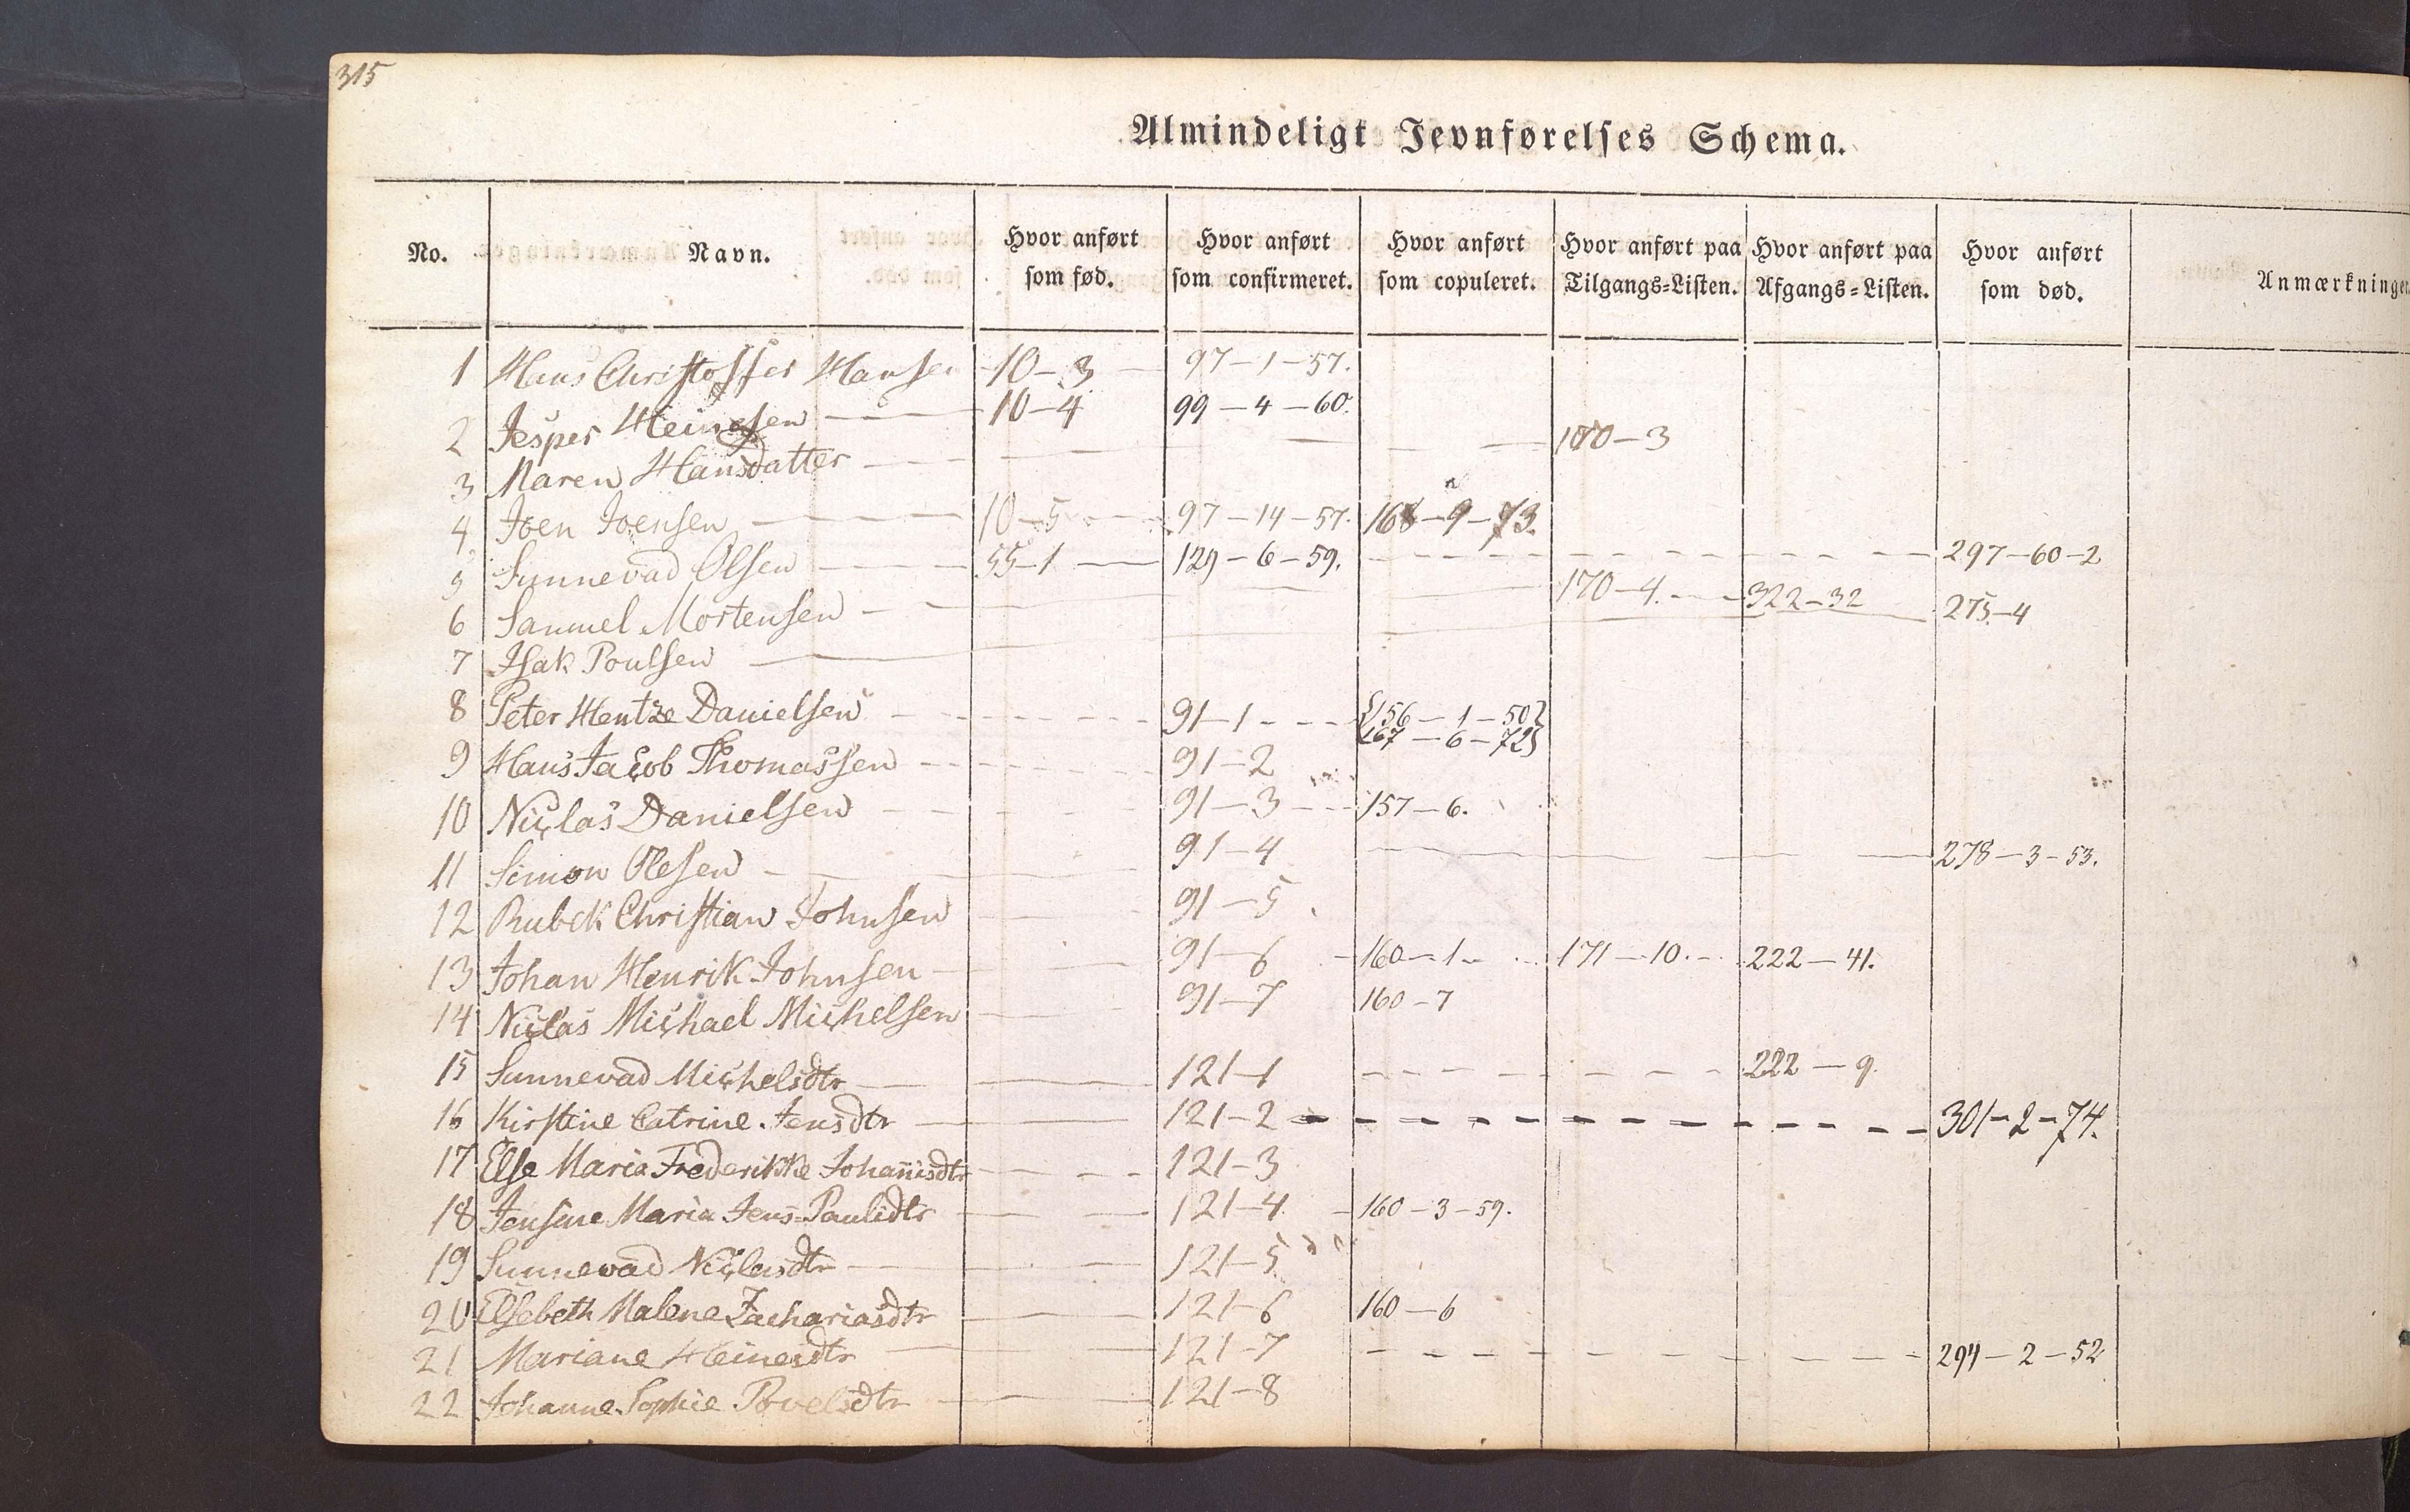 315
Almindeligt Jevnførelses Schema.
No. Navn. Hvor anført som fød. Hvor anført som confirmeret. Hvor anført som copuleret. Hvor anført paa Tilgangs=Listen. Hvor anført paa Afgangs=Listen. Hvor anført som død. Anmærkninger
1 Hans Christoffer Hansen 10—3 97—1—57.
2 Jesper Heinesen 10—4 99—4—60.
3 Maren Hansdatter 170—3
4 Joen Joensen 10—5 97—14—57. 168—9—73.
5 Sunnevad Olsen 55—1 129—6—59. 297—60—2
6 Samuel Mortensen 170—4. 322—32
7 Isak Poulsen 275—4
8 Peter Hentze Danielsen 91—1 {156—1—50} {167—6—72}
9 Hans Jacob Thomassen 91—2
10 Niclas Danielsen 91—3 157—6.
11 Simon Olesen 91—4 278—3—53.
12 Rubek Christian Johnsen 91—5
13 Johan Henrik Johnsen 91—6 160—1 171—10. 222—41.
14 Niclas Michael Michelsen 91—7 160—7
15 Sunnevad Michelsdtr 121—1 222—9.
16 Kirstine Catrine Jensdtr 121—2 301—2—74.
17 Else Maria Frederikke Johannisdtr 121—3
18 Jensine Maria Jens-Paulsdtr 121—4 160—3—59.
19 Sunnevad Niclasdtr 121—5
20 Elsebeth Malene Zachariasdtr 121—6 160—6
21 Mariane Heinesdtr 121—7 294—2—52
22 Johanne Sophie Povelsdtr 121—8